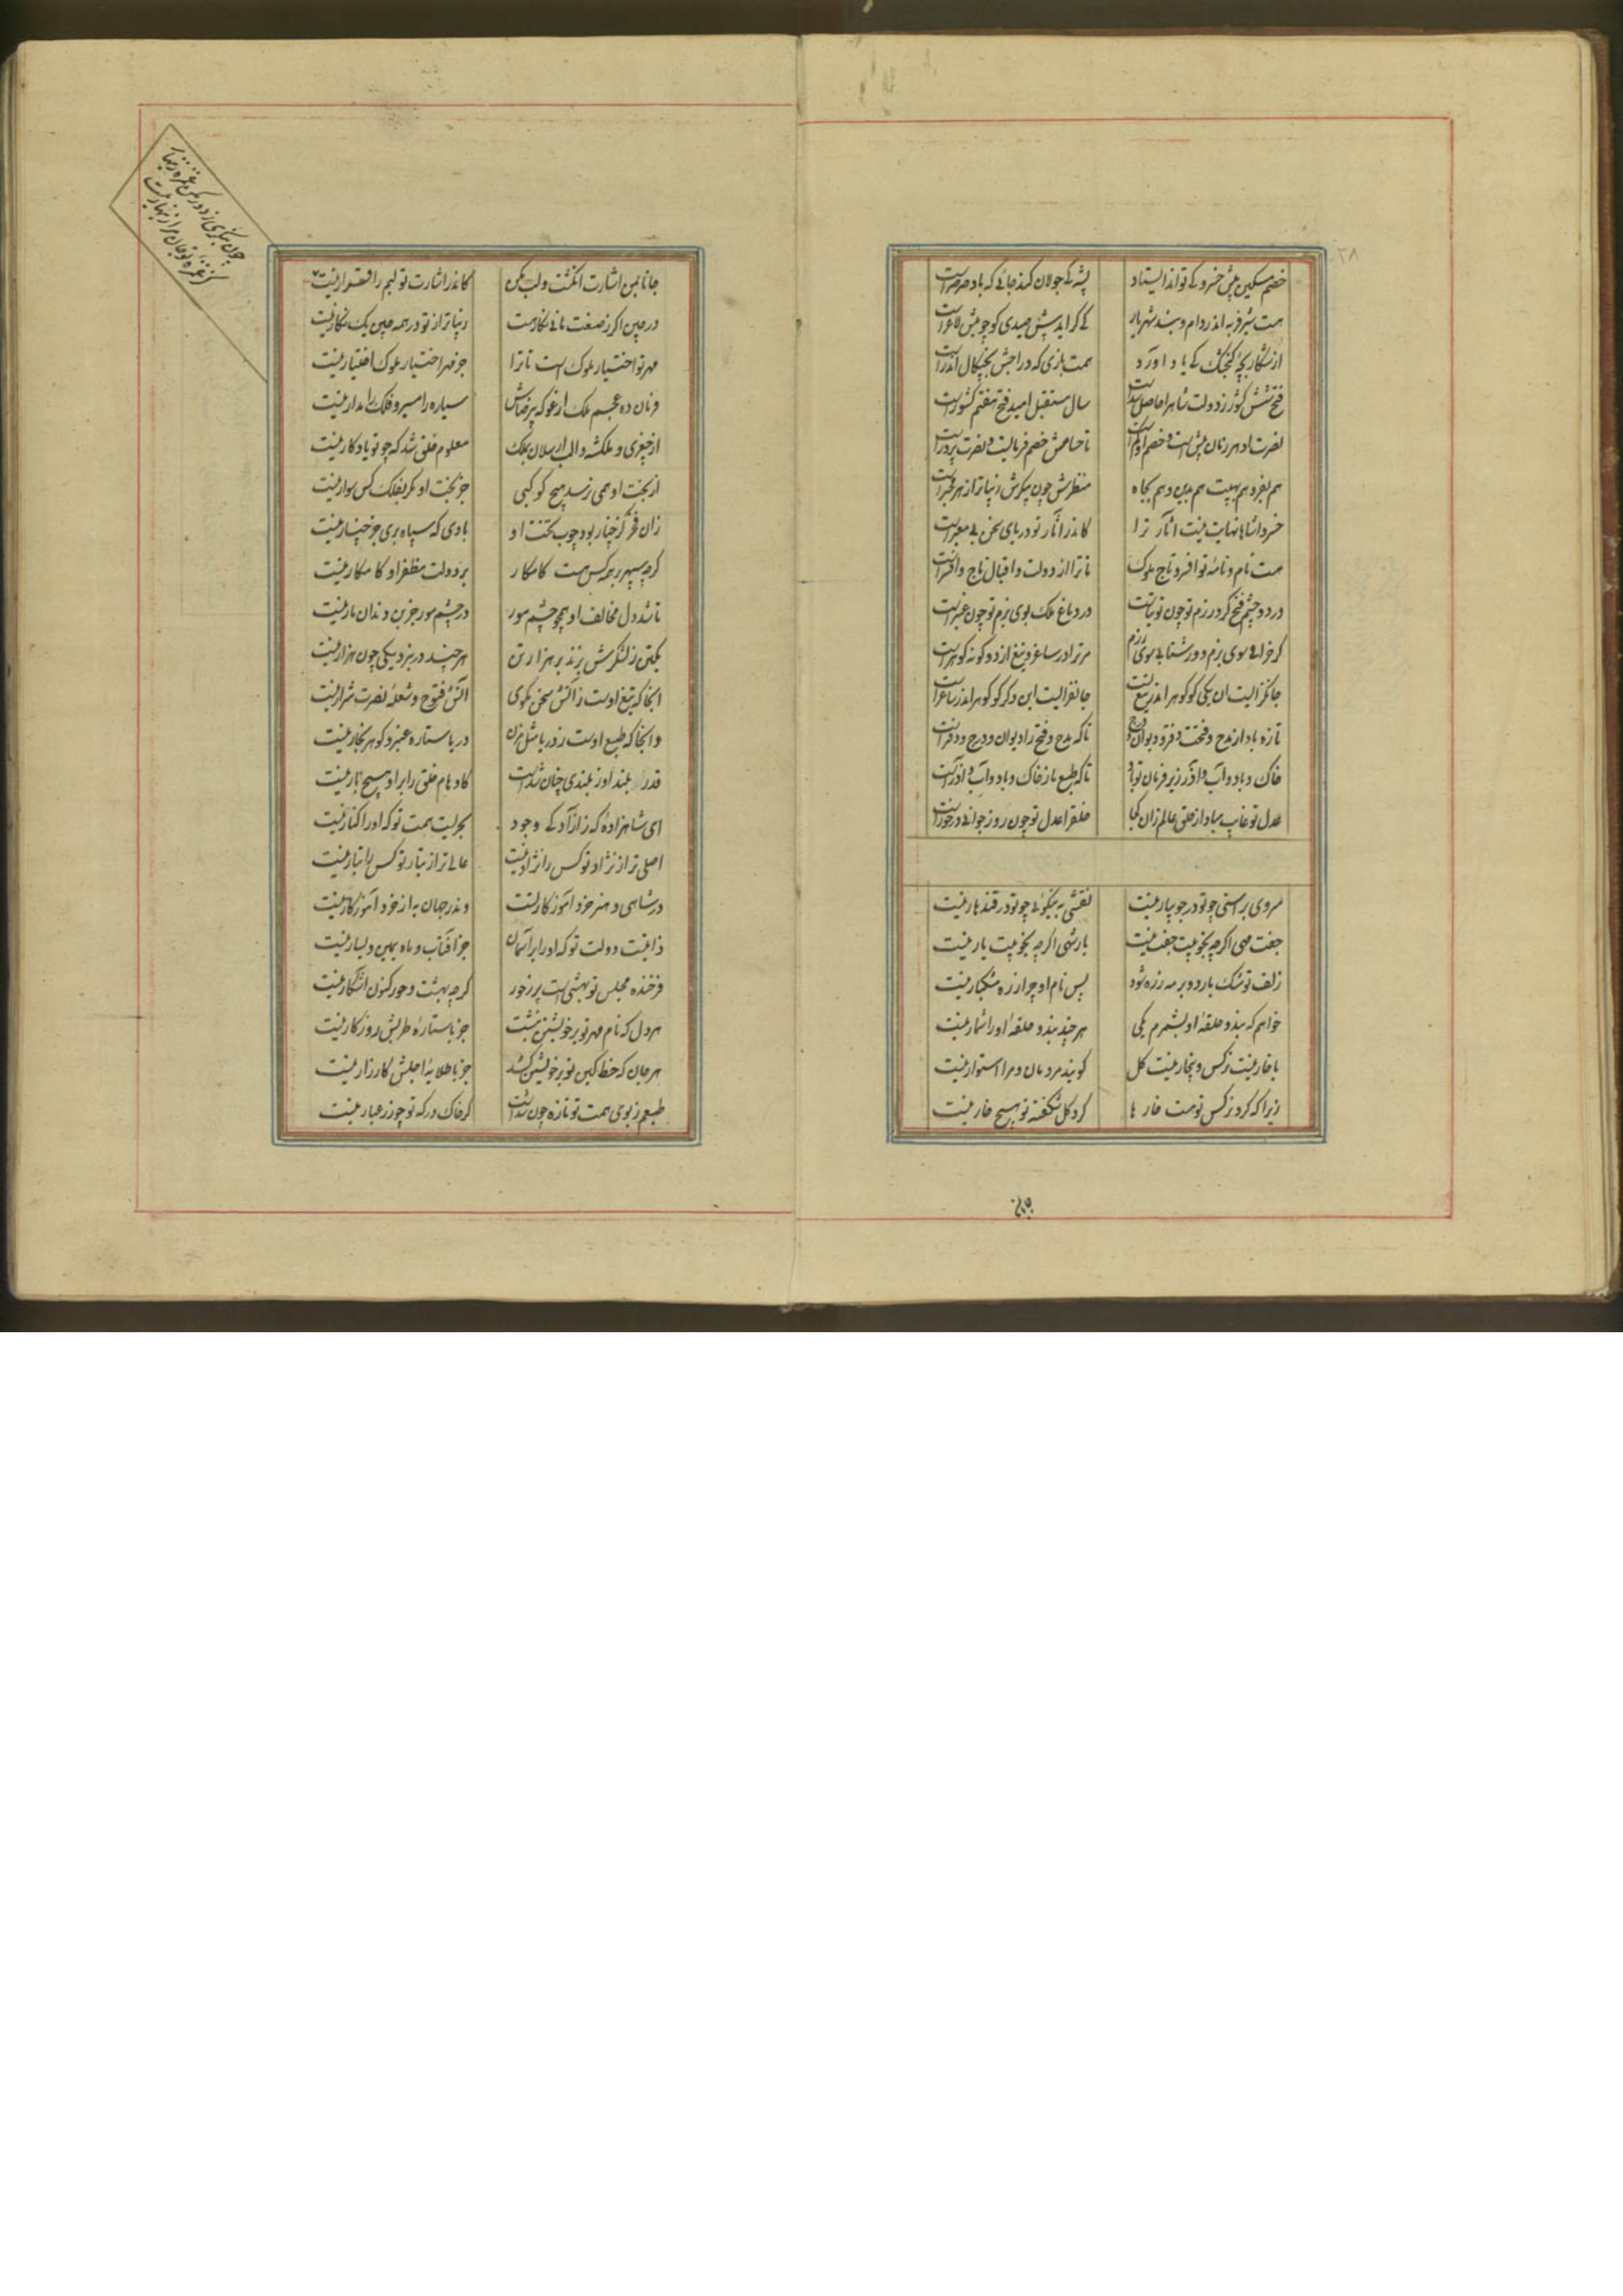 خصم مسکین پیش خسرو کی تواند ایستاد پشه کی جولان کند جائی که باد صرصر است
هست شیر فربه اندر دام و بند شهریار کی گراید پیش صیدی کو چو میش لاغر است
از شکار بچه گنجشک کی یاد آورد همت بازی که در اجش بچنگال اندر است
فتح شش کشور ز دولت شاه را حاصل شدست سال مستقبل امید فتح هفتم کشور است
نصرت او هر زمان پیش است و خصم او کم است تا حسامش خصم فرسایست و نصرت پرور است
هم بفر و هم بهیبت هم بدین و هم بجاه منظرش چون پیکرش زیباتر از هر مخبر است
خسروا شاها نهایت نیست آثار ترا کاندر آثار تو دریای سخن بی معبر است
هست نام و نامه تو افسر و تاج ملوک تا ترا از دولت و اقبال تاج و افسر است
در دو چشم فتح گرد رزم تو چون توتیاست در دماغ ملک بوی بزم تو چون عنبر است
گر خرامی سوی بزم و در شتابی سوی رزم مر ترا در ساغر و تیغ از دو گونه گوهر است
جانگزایست آن یکی کو گوهر اندر تیغ تست جانفزایست این دگر کو گوهر اندر ساغر است
تازه باد از مدح و فتحت دفتر و دیوان و درج تا که مدح و فتح را دیوان و درج و دفتر است
خاک و باد و آب و آذر زیر فرمان تو باد تا که طبع ما ز خاک و باد و آب و آذر است
عدل تو غایب مباد از خلق عالم زان کجا خلق را عدل تو چون روز جوانی در خور است
سروی براستی چو تو در جویبار نیست نقشی به نیکوئی چو تو در قندهار نیست
جفت مهی اگرچه بخوبیت جفت نیست یار شهی اگرچه بخوبیت یار نیست
زلف تو مشک بارد و بر مه زره شود پس نام او چرا زره مشکبار نیست
خواهم که بند و حلقه او بشمرم یکی هر چند بند و حلقه او را شمار نیست
با خار نیست نرگس و بیخار نیست گل گویند مردمان و مرا استوار نیست
زیرا که گرد نرگس تو هست خارها گرد گل شکفته تو هیچ خار نیست
جانا بمن اشارت انگشت و لب مکن کاندر اشارت تو لبم را قرار نیست
در چین اگر ز صنعت مانی نگار هست زیباتر از تو در همه چین یک نگار نیست
مهر تو اختیار ملوک است تا ترا جز مهر اختیار ملوک اختیار نیست
فرمان ده عجم ملک ارغو که بی رضاش سیاره را مسیر و فلک را مدار نیست
از چغری و ملکشه و الب ارسلان بملک معلوم خلق شد که چو تو یادگار نیست
از بخت او همی نرسد هیچ کوکبی جز بخت او مگر بفلک کس سوار نیست
بادی که سپاه بری جز خیار نیست
گرچه سپهر بر همه کس هست کامکار بر دولت مظفر او کامکار نیست
تا شد دل مخالف او همچو چشم مور در چشم مور جز بن دندان مار نیست
یکتن ز لشکرش بزند بر هزار تن هر چند در نبرد یکی چون هزار نیست
آنجا که تیغ اوست ز آتش سخن مگوی آتش فتوح و شعله نصرت شرار نیست
وانجا که طبع اوست ز دریا مثل مزن دریا ستاره عنبر و گوهر بخار نیست
قدر بلند او ز بلندی چنان شدست کاوهام خلق را بر او هیچ بار نیست
ای شاهزاده که ز آزادگی وجود بحریست همت تو که او را کنار نیست
اصلی تر از نژاد تو کس را نژاد نیست عالی تر از تبار تو کس را تبار نیست
در شاهی و هنر خرد آموزگار تست وندر جهان به از خرد آموزگار نیست
ذاتیست دولت تو که او را بر آسمان جز آفتاب و ماه یمین و یسار نیست
فرخنده مجلس تو بهشتی است پر ز حور گرچه بهشت و حور کنون آشکار نیست
هر دل که نام مهر تو بر خویشتن نبشت جز با ستاره طربش روزگار نیست
هر جان که خط کین تو بر خویشتن کشد جز با طلایه اجلش کارزار نیست
طبعم ز بوی همت تو تازه چون شدست گر خاک درگه تو چو زر عیار نیست